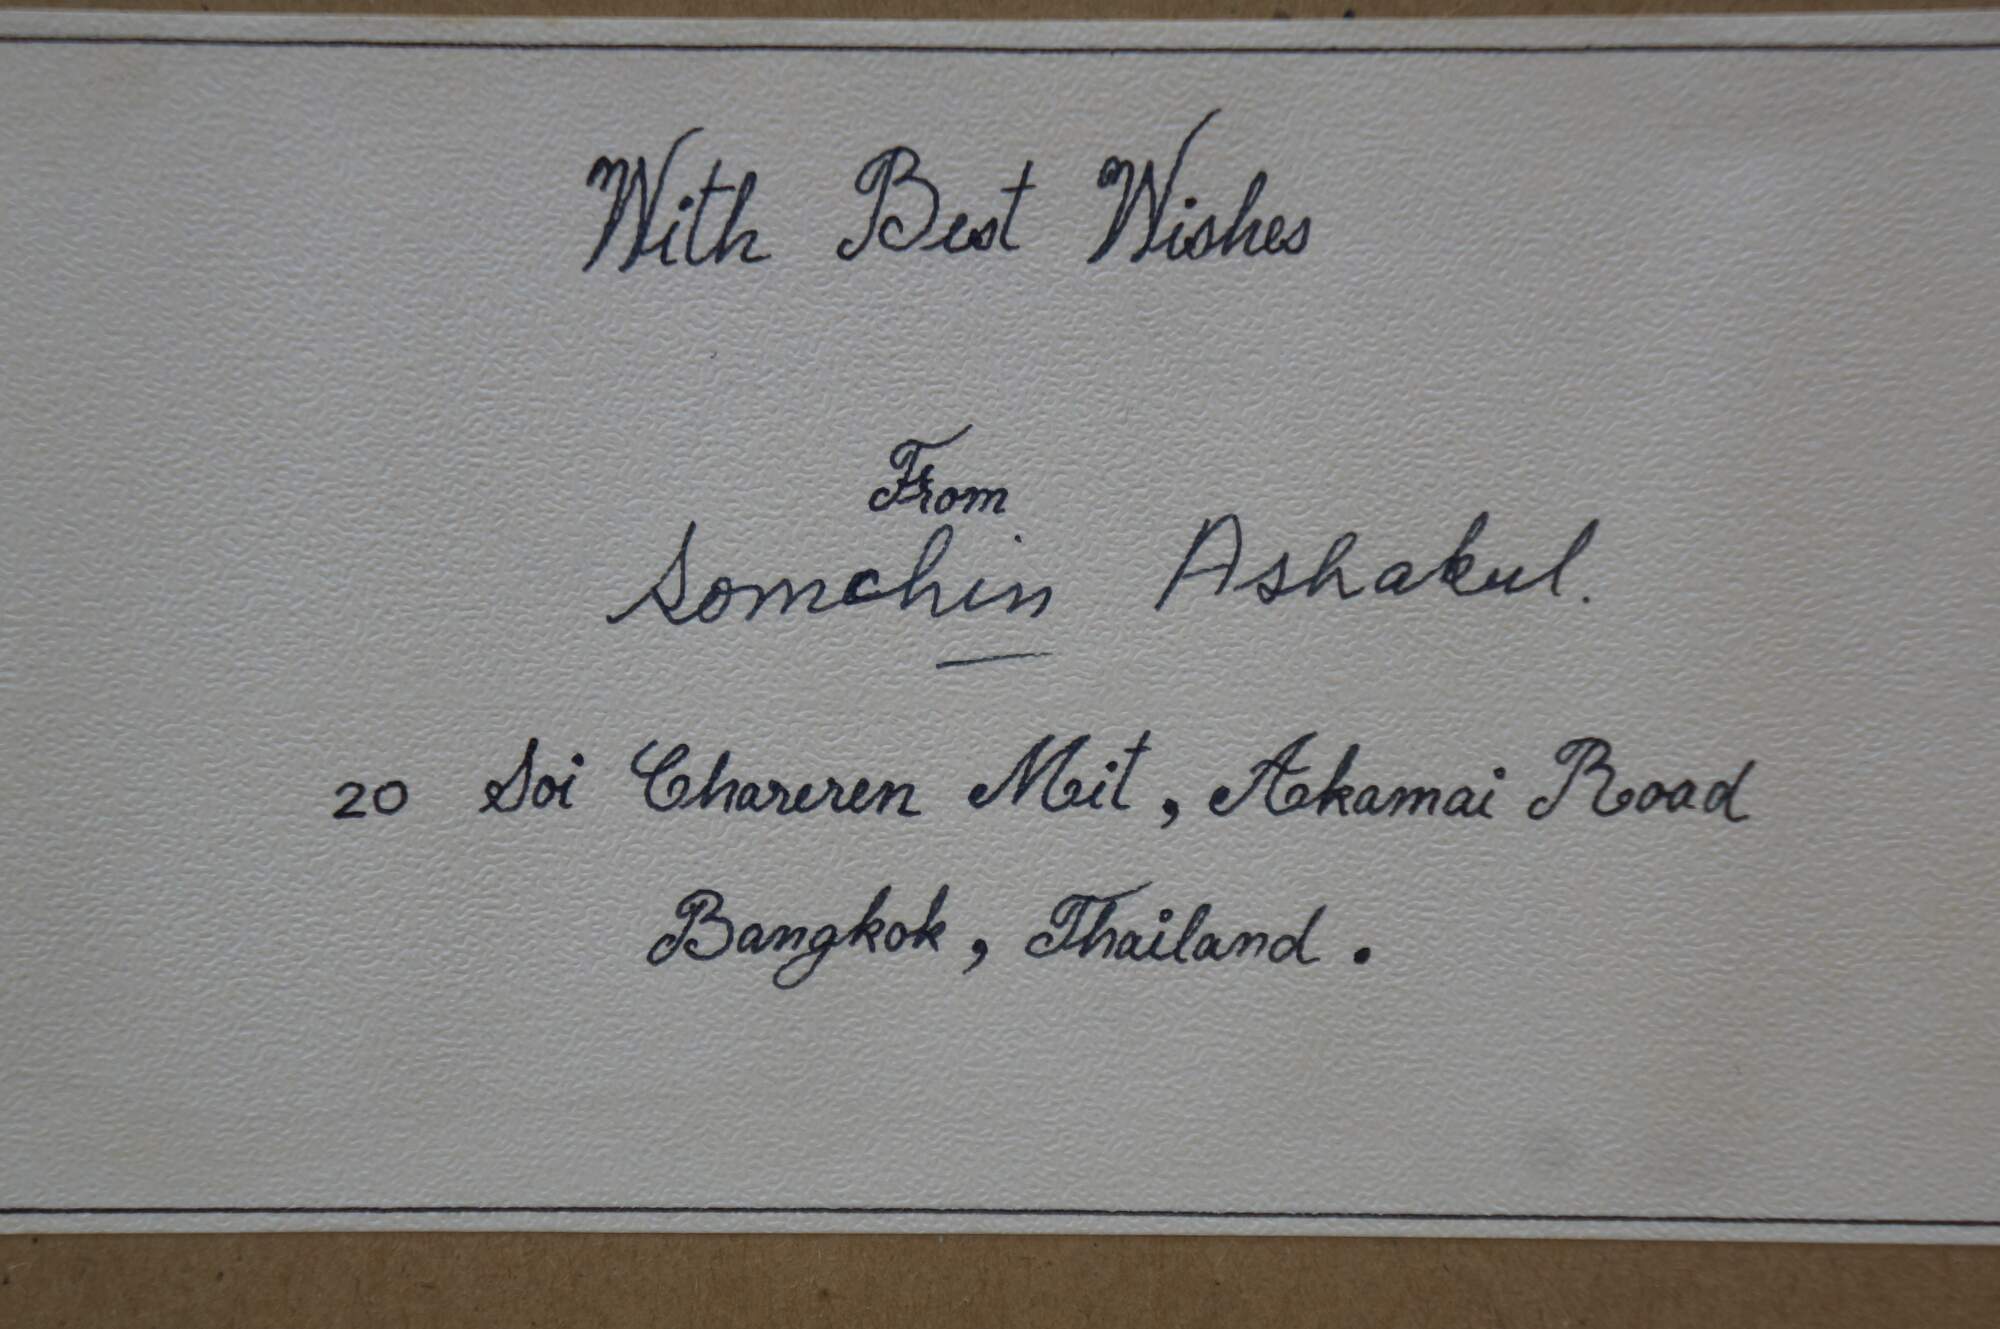 With Best Wishes
From
Somchin Ashakul.
20 Soi Chareren Mit, Aekamai Road
Bangkok, Thailand.